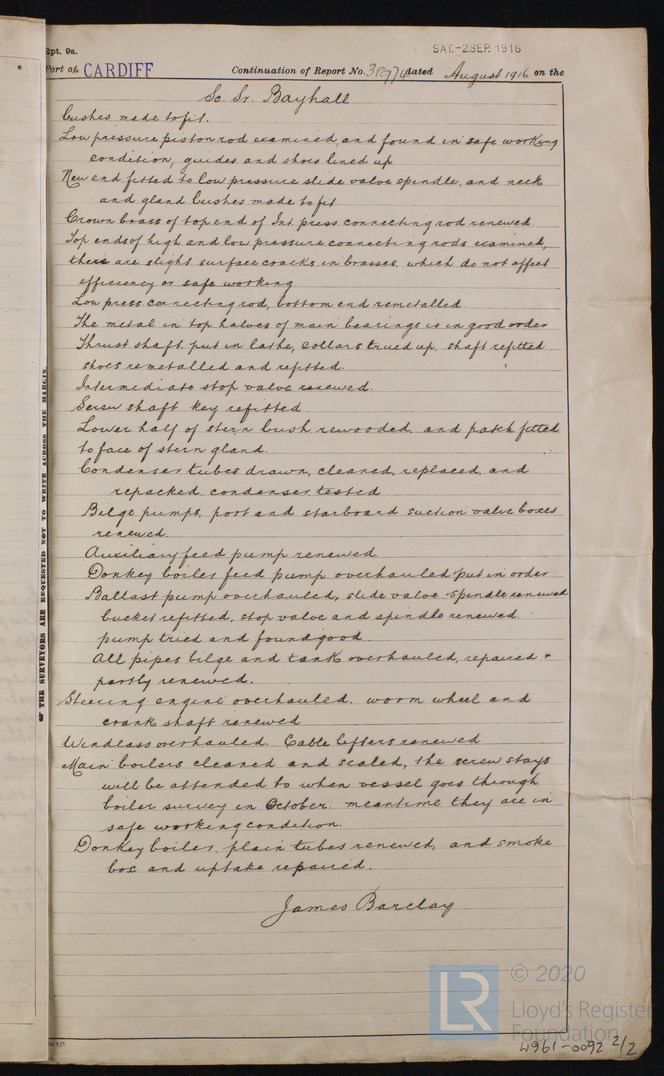 Rpt. 9a.
SAT. -2 SEP. 1916
Port of CARDIFF Continuation of Report No. dated August 1916 on the
Sc. Sr. Bayhall
bushes made to fit.
Low pressure piston rod examined, and found in safe working
condition, guides and shoes lined up
New end fitted to low pressure slide valve spindle, and neck
and gland bushes made to fit
Crown brass of top end of Int. press connecting rod renewed
Top ends of high and low pressure connecting rods examined,
there are slight surface cracks in brasses which do not affect
efficiency or safe working.
Low press. connecting rod, bottom end remetalled.
The metal in top halves of main bearings is in good order
Thrust shaft put in lathe, collars trued up, shaft refitted
shoes remetalled and refitted.
Intermediate stop valve renewed.
Screw shaft key refitted
Lower half of stern bush rewooded, and patch fitted
to face of stern gland.
Condenser tubes drawn, cleaned, replaced, and
repacked. condenser tested
Bilge pumps, port and starboard suction valve boxes
renewed.
Auxiliary feed pump renewed
Donkey boiler feed pump overhauled put in order
Ballast pump overhauled, slide valve spindle renewed
bucket refitted, stop valve and spindle renewed.
pump tried and found good.
All pipes bilge and tank overhauled, repaired +
partly renewed.
Steering engine overhauled. worm wheel and
crank shaft renewed
Windlass overhauled. Cable lifters renewed
Main boilers cleaned and scaled, the screw stays
will be attended to when vessel goes through
boiler survey in October. meantime they are in
safe working condition.
Donkey boiler, plain tubes renewed, and smoke
box and uptake repaired.
James Barclay
THE SURVEYORS ARE REQUESTED NOT TO WRITE ACROSS THE MARGIN.
LR © 2020
Lloyd's Register
Foundation
W961-0092 2/2